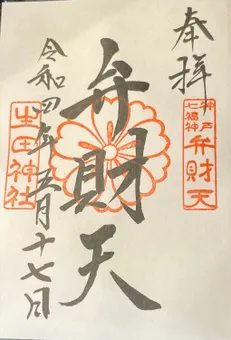 奉拝
神戸
七福神
弁財天
弁財天
生田神社
令和四年五月十七日